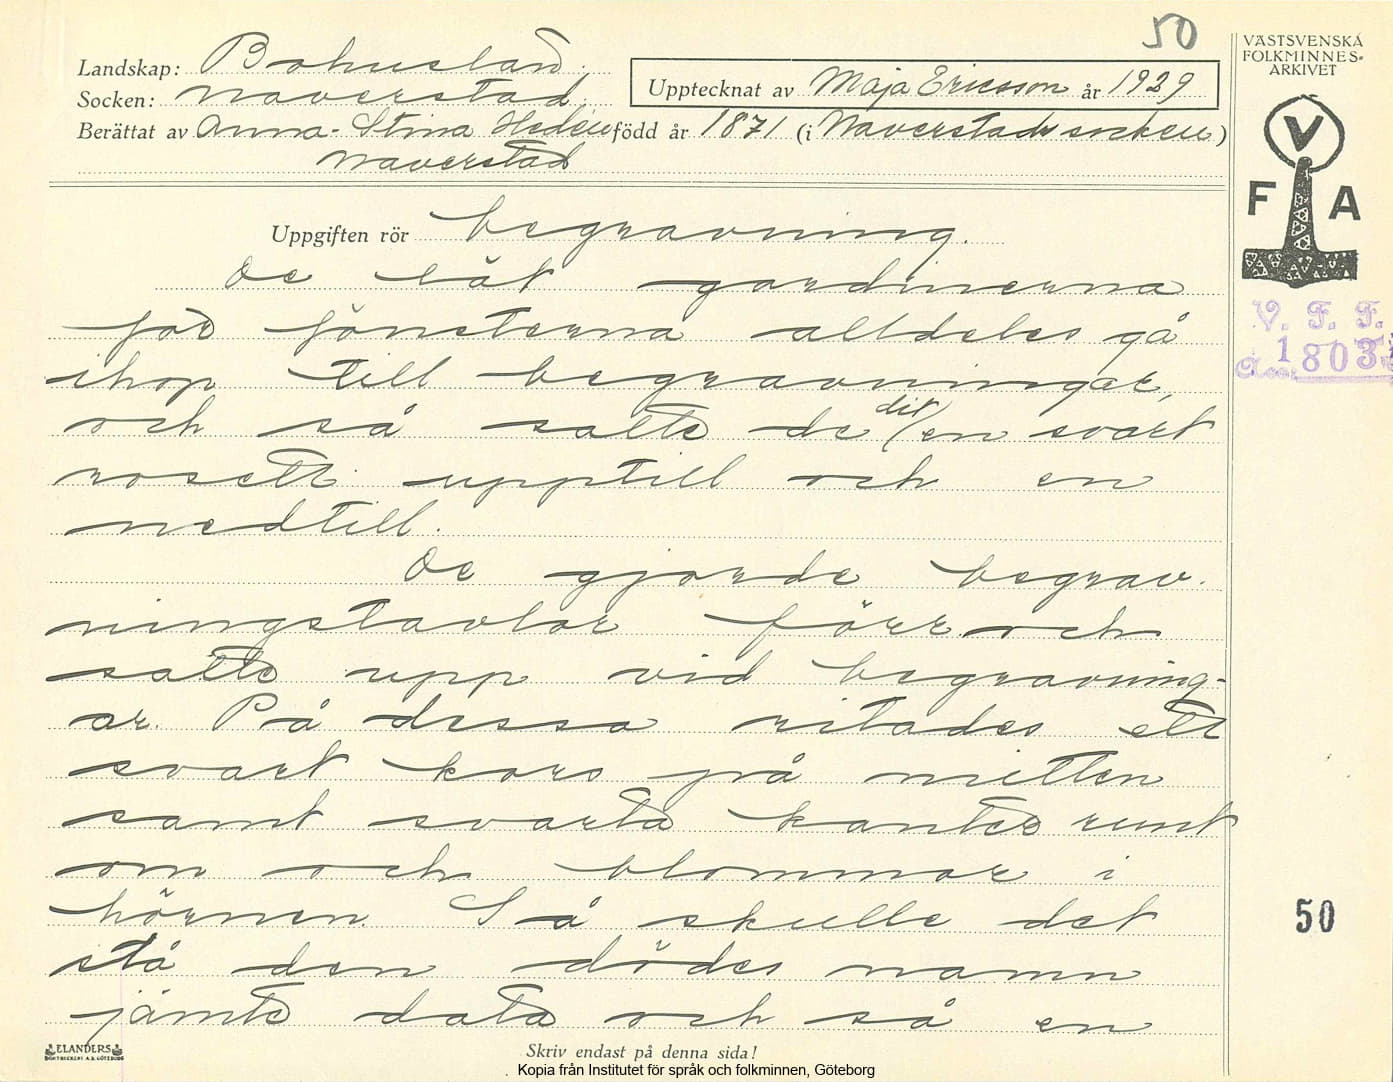 50
Landskap: Bohuslän.
Socken: Naverstad.
Upptecknat av Maja Ericsson år 1929
Berättat av Anna-Stina Hedén född år 1871 (i Naverstads socken)
Naverstad
VÄSTSVENSKA
FOLKMINNES-
ARKIVET
V
F A
V. F. F.
Acc. 1803
Uppgiften rör begravning.
De lät gardinerna
för fönsterna alldeles gå
ihop till begravningar,
och så satte de dit en svart
rosett upptill och en
nedtill.
De gjorde begrav-
ningstavlor förr och
satte upp vid begravning-
ar. På dessa ritades ett
svart kors på mitten
samt svarta kanter runt
om och blommor i
hörnen. Så skulle det
stå den dödes namn
jämte data och så en
50
ELANDERS
BOKTRYCKERI A.B. GÖTEBORG
Skriv endast på denna sida!
Kopia från Institutet för språk och folkminnen, Göteborg